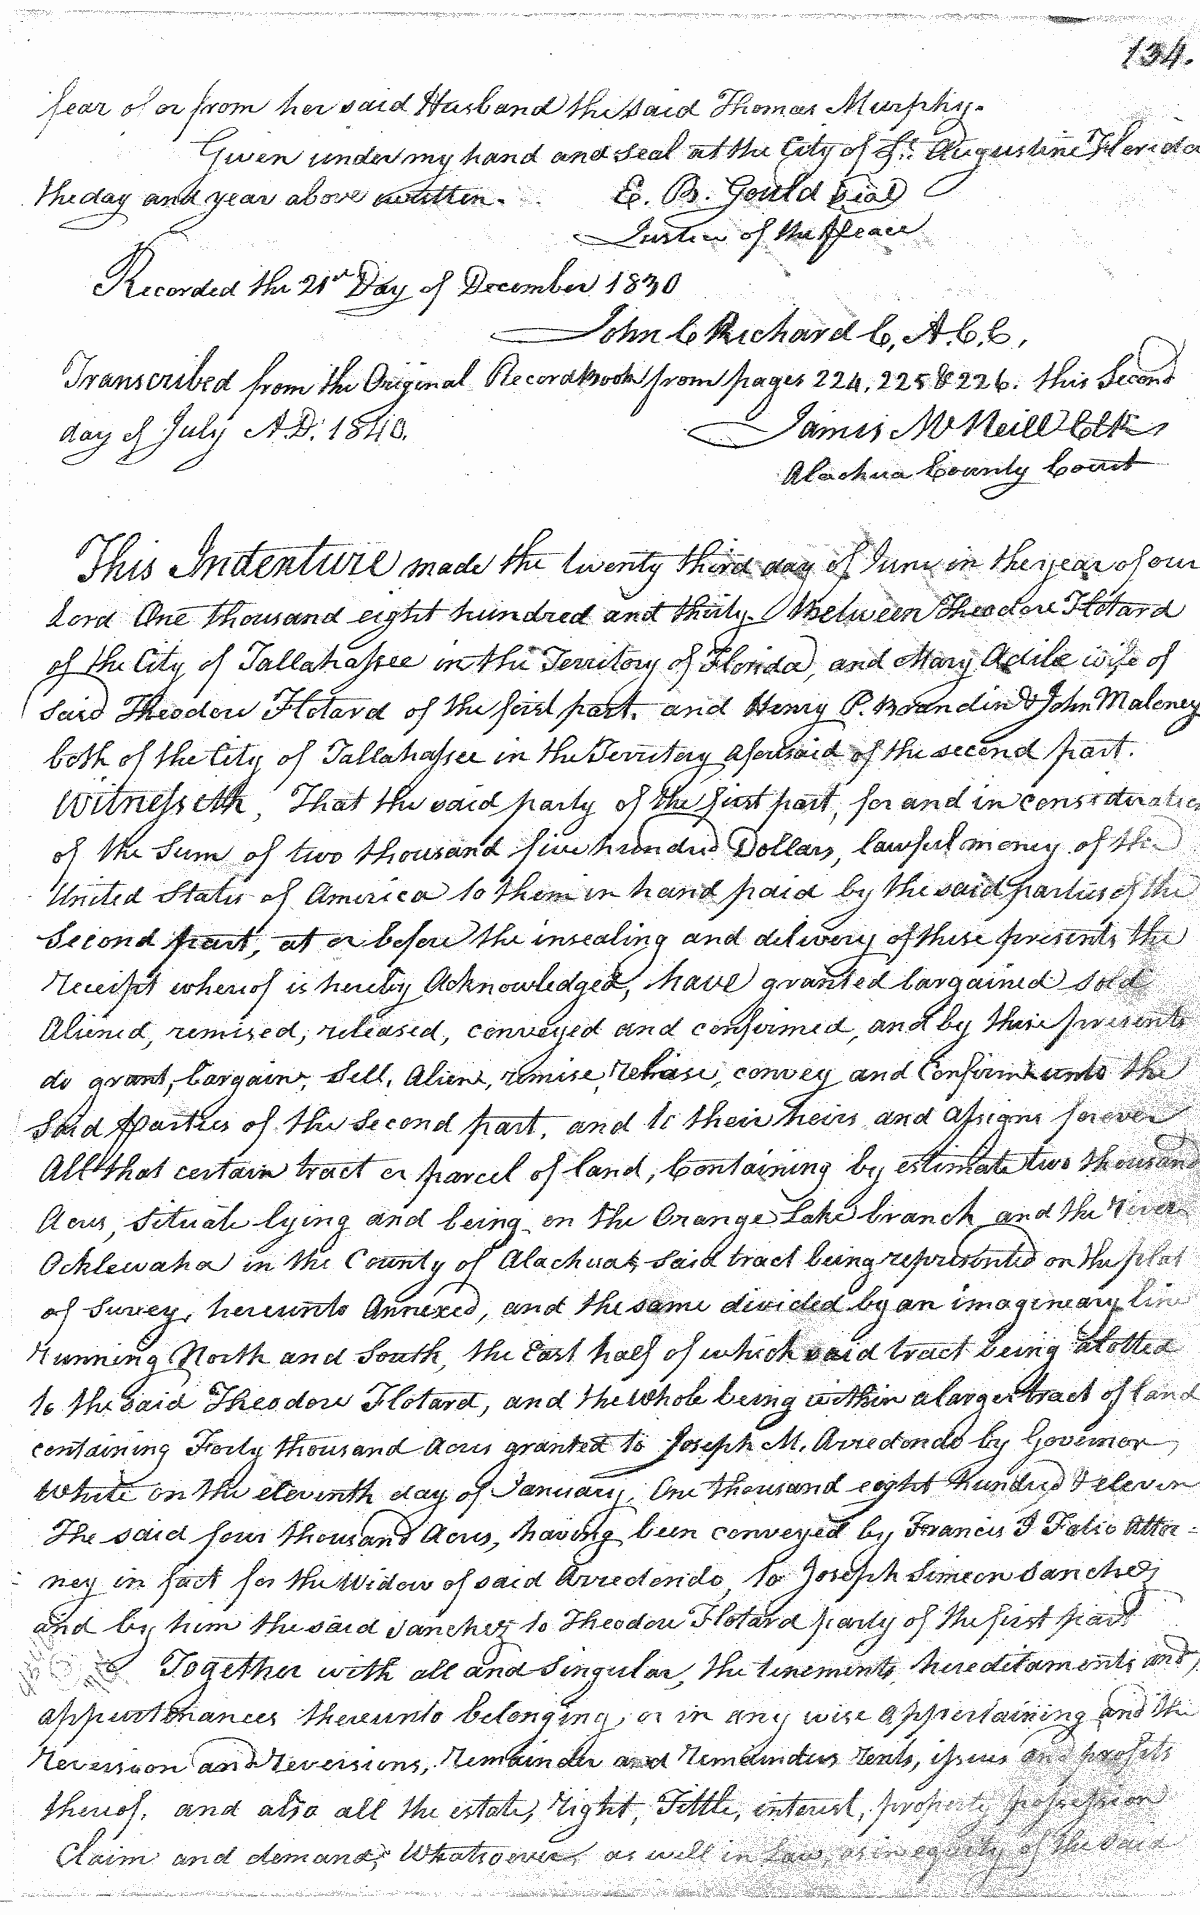 134.
fear of or from her said Husband the said Thomas Murphy.
Given under my hand and seal at the City of St. Augustine Florida
the day and year above written. E. B. Gould Seal
Justice of the Peace
Recorded the 21st Day of December 1830
John C Richard C, A. C. C,
Transcribed from the Original Record Book from pages 224, 225 & 226. this Second
day of July A.D. 1840.
James McNeill Clk
Alachua County Court
This Indenture made the twenty third day of June in the year of our
Lord One thousand eight hundred and thirty. Between Theodore Flotard
of the City of Tallahassee in the Territory of Florida, and Mary Adile wife of
said Theodore Flotard of the first part. and Henry P. Brandin & John Maloney
both of the City of Tallahassee in the Territory aforesaid of the second part.
Witnesseth, That the said party of the first part, for and in consideration
of the Sum of two thousand five hundred Dollars, lawful money of the
United States of America to them in hand paid by the said parties of the
Second part, at or before the insealing and delivery of these presents the
receipt whereof is hereby Acknowledged, have granted bargained sold
Aliened, remised, released, conveyed and confirmed, and by these presents
do grant, bargain, Sell, Alien, remise, release, convey and Confirm unto the
Said Parties of the Second part, and to their heirs and assigns forever
All that certain tract or parcel of land, Containing by estimate two thousand
Acres, Situate lying and being on the Orange Lake branch and the River
Ocklewaha in the County of Alachua, said tract being represented on the plat
of Survey, hereunto Annexed, and the same divided by an imagineary line
running North and South, the East half of which said tract being alotted
to the said Theodore Flotard, and the whole being within a larger tract of land
containing Forty thousand Acres granted to Joseph M. Arredondo by Governor
White on the eleventh day of January, One thousand eight hundred & eleven
The said four thousand Acres, having been conveyed by Francis J Fatio Attor=
ney in fact for the Widow of said Arredondo, to Joseph Simeon Sanchez
and by him the said Sanchez to Theodore Flotard party of the first part
Together with all and Singular, the tenements, hereditaments and,
appurtenances thereunto belonging, or in any wise appertaining and the
reversion and reversions, remainder and remainders rents, issues and profits
thereof, and also all the estate, right, Tittle, interest, property possession
Claim and demand, Whatsoever, as well in Law, as in equity of the said